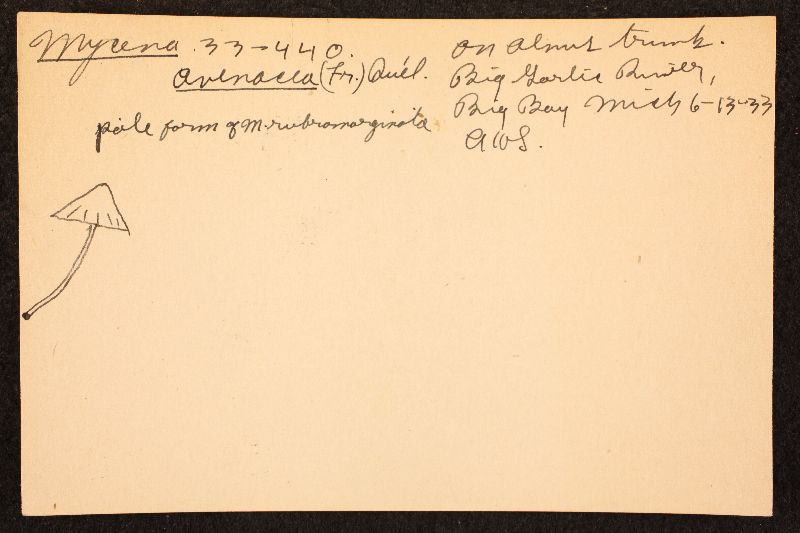 Mycena 33-440.
avenacea (Fr.) Quél.
pale form of M. rubromarginata
on alnus trunk.
Big Garlic River,
Big Bay Mich 6-13-33
AHS.